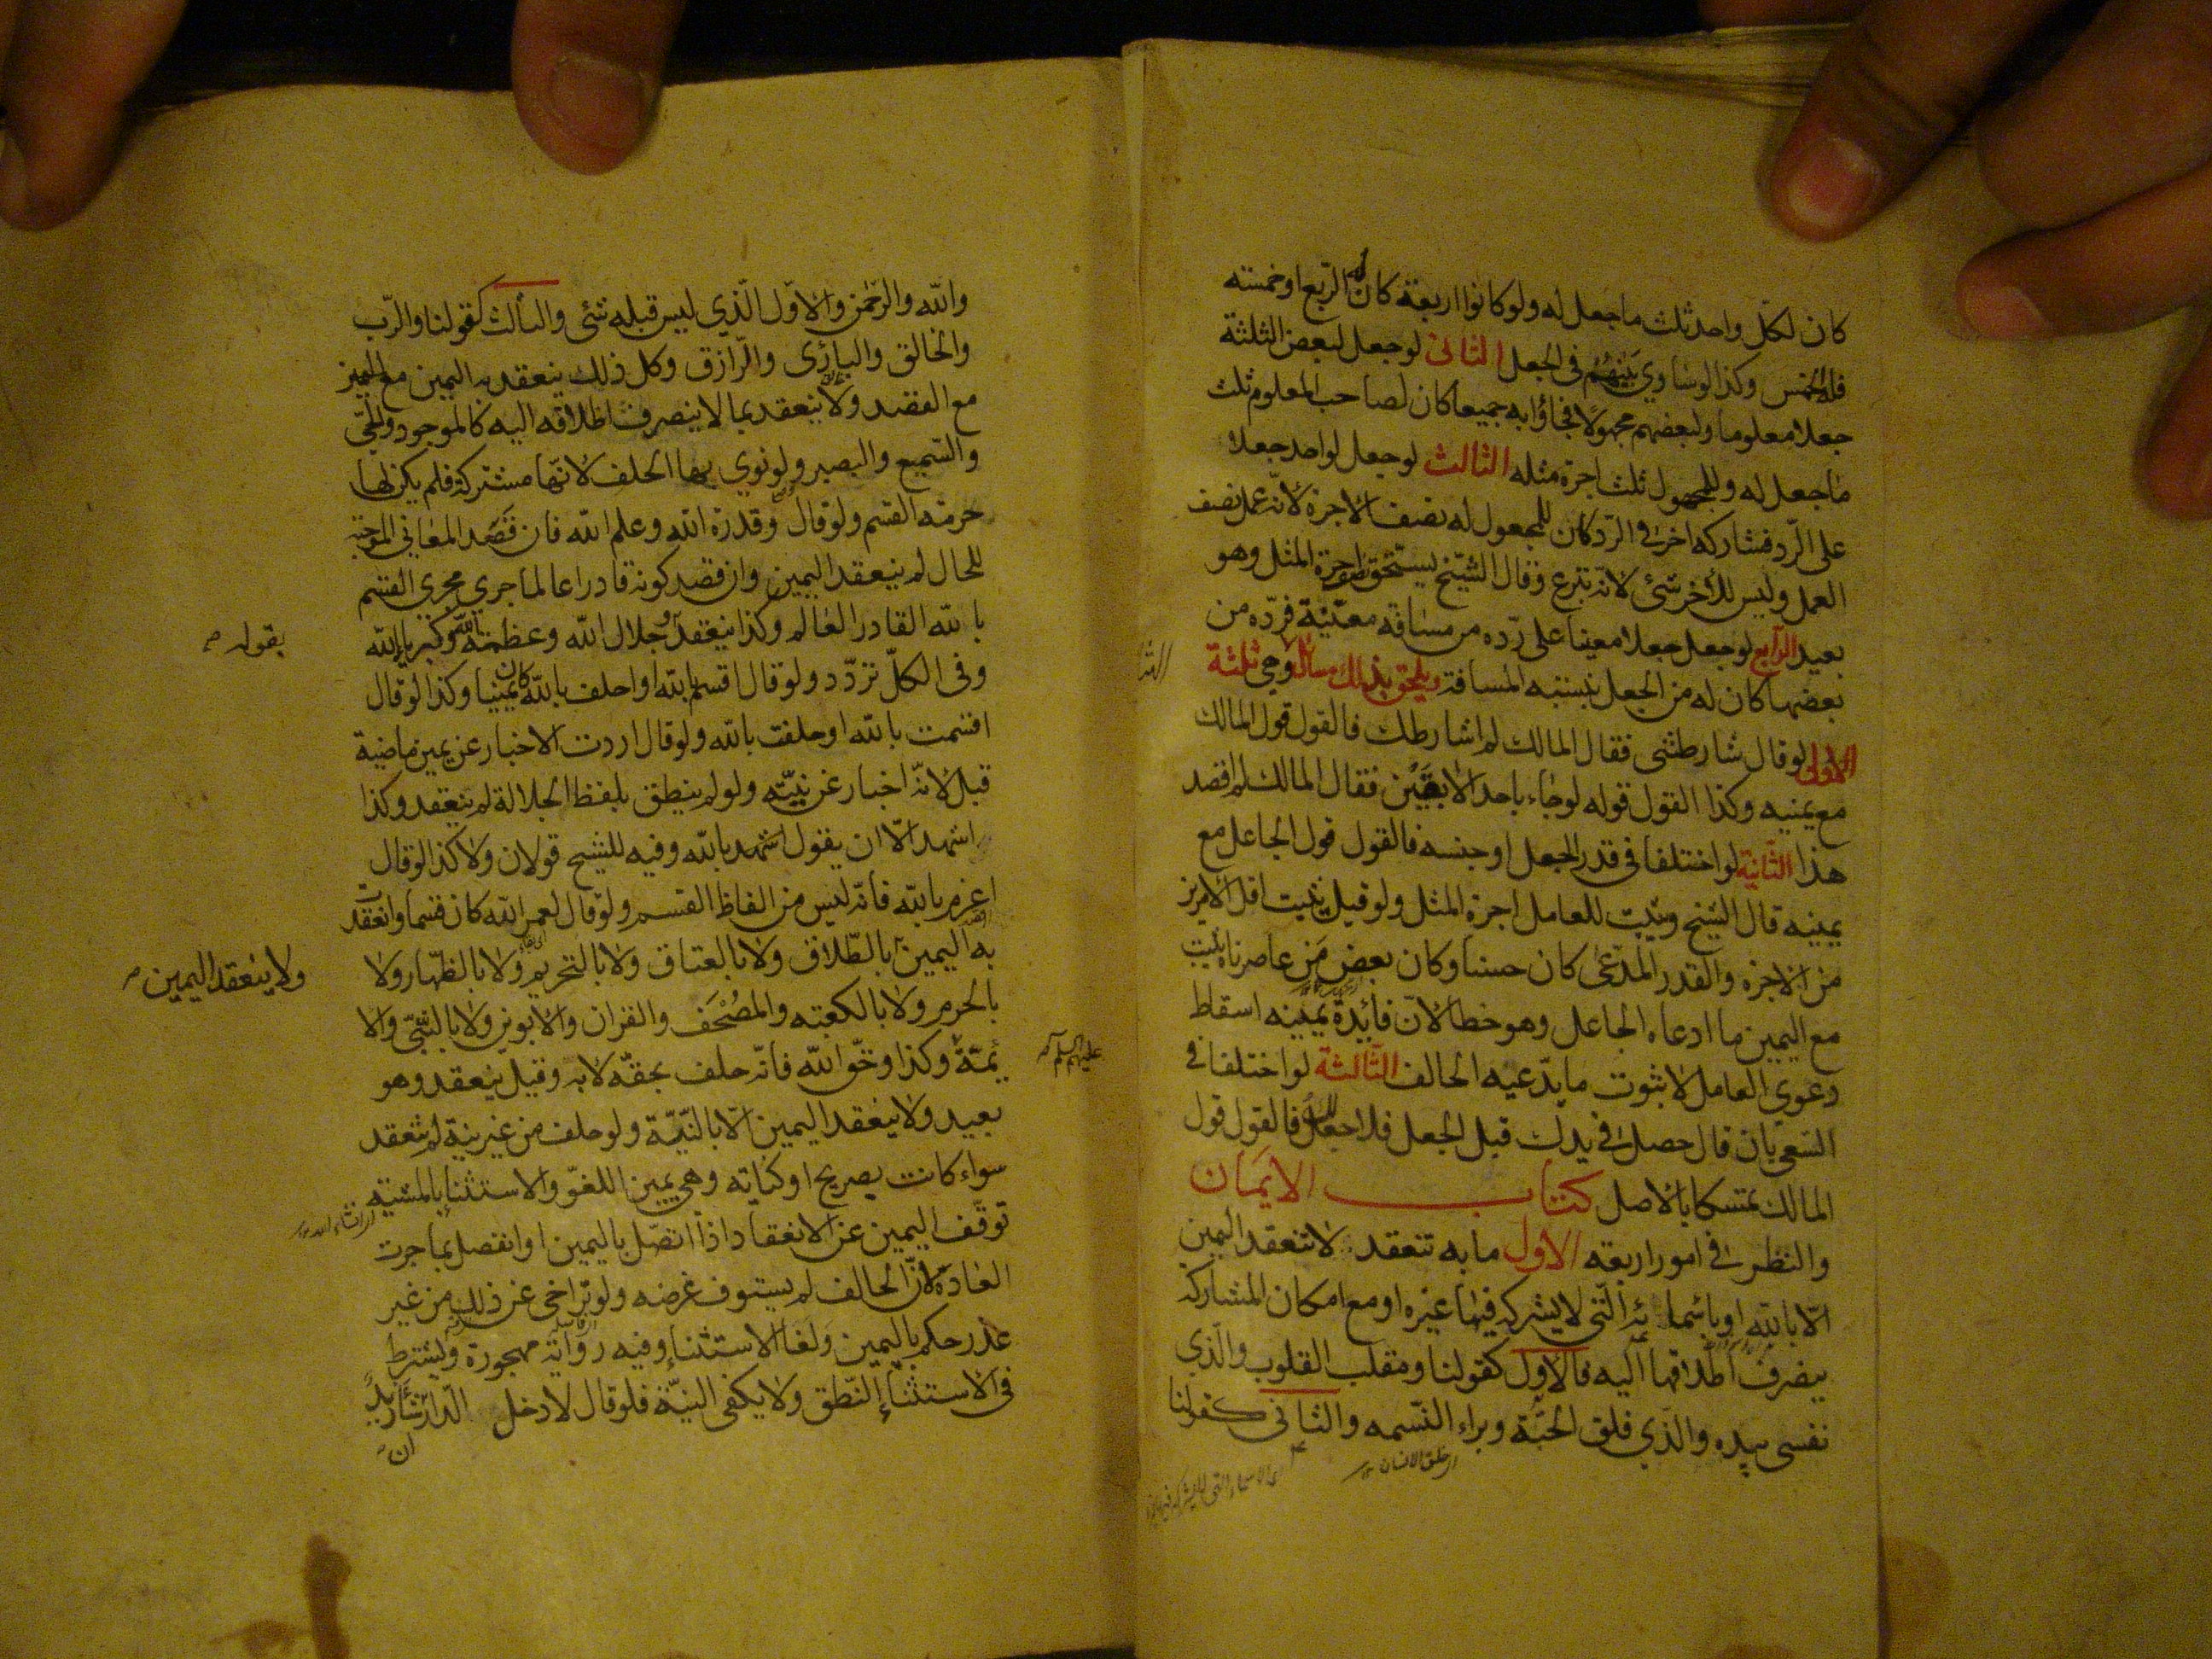 كان لكل واحد ثلث ما جعل له ولو كانوا اربعة كان له الربع او خمسته
فله الخمس وكذا لو ساوي بينهم في الجعل الثاني لو جعل لبعض الثلثة
جعلا معلوما ولبعضهم مجهولا فجاؤا به جميعا كان لصاحب المعلوم ثلث
ما جعل له وللمجهول ثلث اجرة مثله الثالث لو جعل لواحد جعلا
على الرد فشاركه اخر في الرد كان للمجعول له نصف الاجرة لانه عمل نصف
العمل وليس للآخر شئ لانه تبرع وقال الشيخ يستحق نصف اجرة المثل وهو
بعيد الرابع لو جعل جعلا معينا على رده من مسافة معينة فرده من
بعضها كان له من الجعل بنسبة المسافة ويلحق بذلك مسائل وهي ثلثة
الاولى لو قال شارطتنى فقال المالك لم اشارطك فالقول قول المالك
مع يمينه وكذا القول قوله لو جاء باحد الابقين فقال المالك لم اقصد
هذا الثانية لو اختلفا في قدر الجعل او جنسه فالقول قول الجاعل مع
يمينه قال الشيخ ويثبت للعامل اجرة المثل ولو قيل يثبت اقل الامرين
من الاجرة والقدر المدعى كان حسنا وكان بعض من عاصرناه يثبت
مع اليمين ما ادعاه الجاعل وهو خطا لان فائدة يمينه اسقاط
دعوي العامل لا ثبوت ما يدعيه الحالف الثالثة لو اختلفا في
السعي بان قال حصل في يدك قبل الجعل فلا جعل لك فالقول قول
المالك تمتسكا بالاصل كتاب الايمان
والنظر في امور اربعة الاول ما به تنعقد لا تنعقد اليمين
الا بالله او باسمائه التي لا يشركه فيها غيره او مع امكان المشاركة
ينصرف اطلاقها اليه فالاول كقولنا ومقلب القلوب والذي
نفسي بيده والذي فلق الحبة وبراء النسمه والثاني كقولنا
اى خلق الانسان
والله والرحمن والاول الذي ليس قبله شئ والثالث كقولنا والرب
والخالق والبارئ والرازق وكل ذلك ينعقد به اليمين مع اليمين
مع القصد ولا ينعقد بما لا ينصرف اطلاقه اليه كالموجود والحي
والسميع والبصير ولو نوي بها الحلف لانها مشتركة فلم يكن لها
حرمة القسم ولو قال وقدرة الله وعلم الله فان قصد المعاني الموجبة
للحال لم ينعقد اليمين وان قصد كونه قادرا عالما جري مجري القسم
بالله القادر العالم وكذا ينعقد بقوله وجلال الله وعظمة الله وكبرياء الله
وفى الكل تردد ولو قال اقسم بالله او احلف بالله كان يمينا وكذا لو قال
اقسمت بالله او حلفت بالله ولو قال اردت الاخبار عن يمين ماضية
قبل لانه اخبار عن نيته ولو لم ينطق بلفظ الجلالة لم ينعقد وكذا
اشهد الا ان يقول اشهد بالله وفيه للشيخ قولان ولا كذا لو قال
اعزم بالله فانه ليس من الفاظ القسم ولو قال لعمر الله كان قسما وانعقدت
به اليمين ولا ينعقد اليمين بالطلاق ولا بالعتاق ولا بالتحريم ولا بالظهار ولا
بالحرم ولا بالكعبة والمصحف والقران والابوين ولا بالنبي والا
ئمة عليهم السلم وكذا وحق الله فانه حلف بحقه لا به وقيل ينعقد وهو
بعيد ولا ينعقد اليمين الا بالنية ولو حلف من غير نية لم تنعقد
سواء كانت بصريح او كناية وهي يمين اللغو والاستثناء بالمشية
اى انشاء الله
توقف اليمين عن الانعقاد اذا اتصل باليمين او انفصل بما جرت
العادة لان الحالف لم يستوف غرضه ولو تراخى عن ذلك من غير
عذر حكم باليمين ولغا الاستثناء وفيه رواية مهجورة ويشترط
في الاستثناء النطق ولا يكفى النية فلو قال لا دخل الدار ان شاء زيد